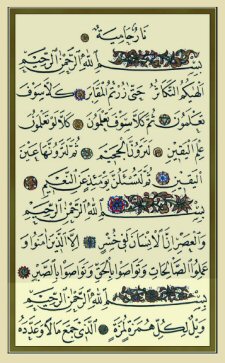 نار حامية
بسم الله الرحمن الرحيم
ألهيكم التكاثر حتى زرتم المقابر كلا سوف
تعلمون ثم كلا سوف تعلمون كلا لو تعلمون
علم اليقين لترون الجحيم ثم لترونها عين
اليقين ثم لتسئلن يومئذ عن النعيم
بسم الله الرحمن الرحيم
والعصر إن الإنسان لفي خسر إلا الذين آمنوا و
عملوا الصالحات وتواصوا بالحق وتواصوا بالصبر
بسم الله الرحمن الرحيم
ويل لكل همزة لمزة الذي جمع مالا وعدده